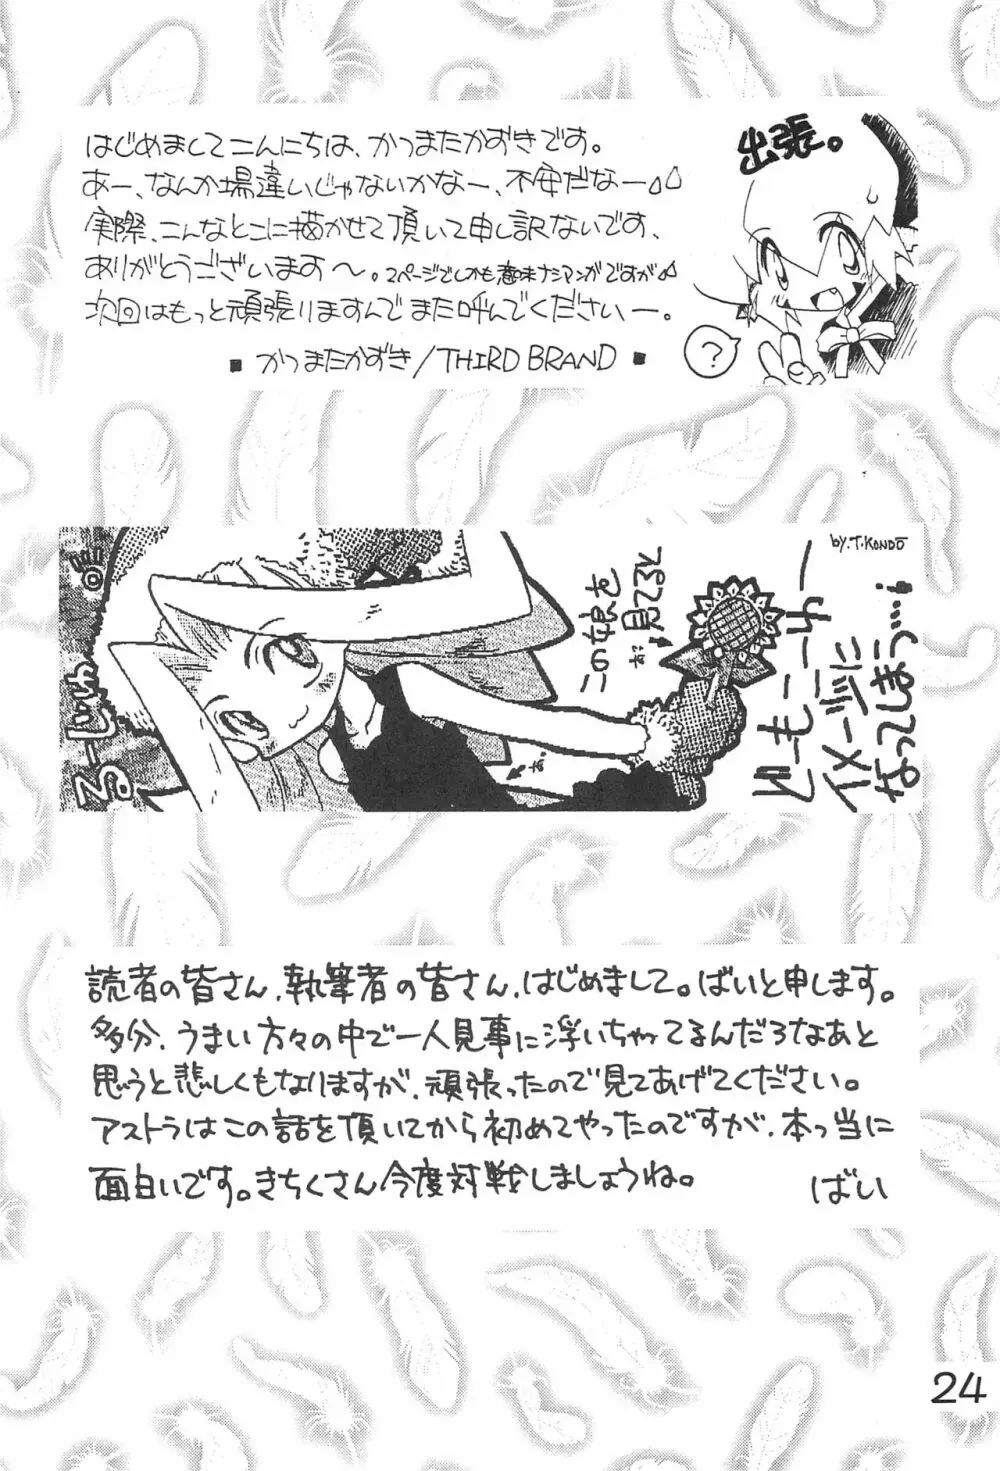 はじめましてこんにちは、かつまたかずきです。
あー、なんか場違いじゃないかなー、不安だなー
実際、こんなとこに描かせて頂いて申し訳ないです、
ありがとうございます〜。2ページでしかも意味ナシマンガですが
次回はもっと頑張りますんでまた呼んでくださいー。
■ かつまたかずき/THIRD BRAND ■
出張。
?
by.T.KONDO
この娘を
見てると
どーもーゎー
イメージに
なってしまう…!
読者の皆さん、執筆者の皆さん、はじめまして。ばいと申します。
多分、うまい方々の中で一人見事に浮いちゃってるんだろなあと
思うと悲しくもなりますが、頑張ったので見てあげてください。
アストラはこの話を頂いてから初めてやったのですが、本っ当に
面白いです。きちくさん今度対戦しましょうね。
ばい
24